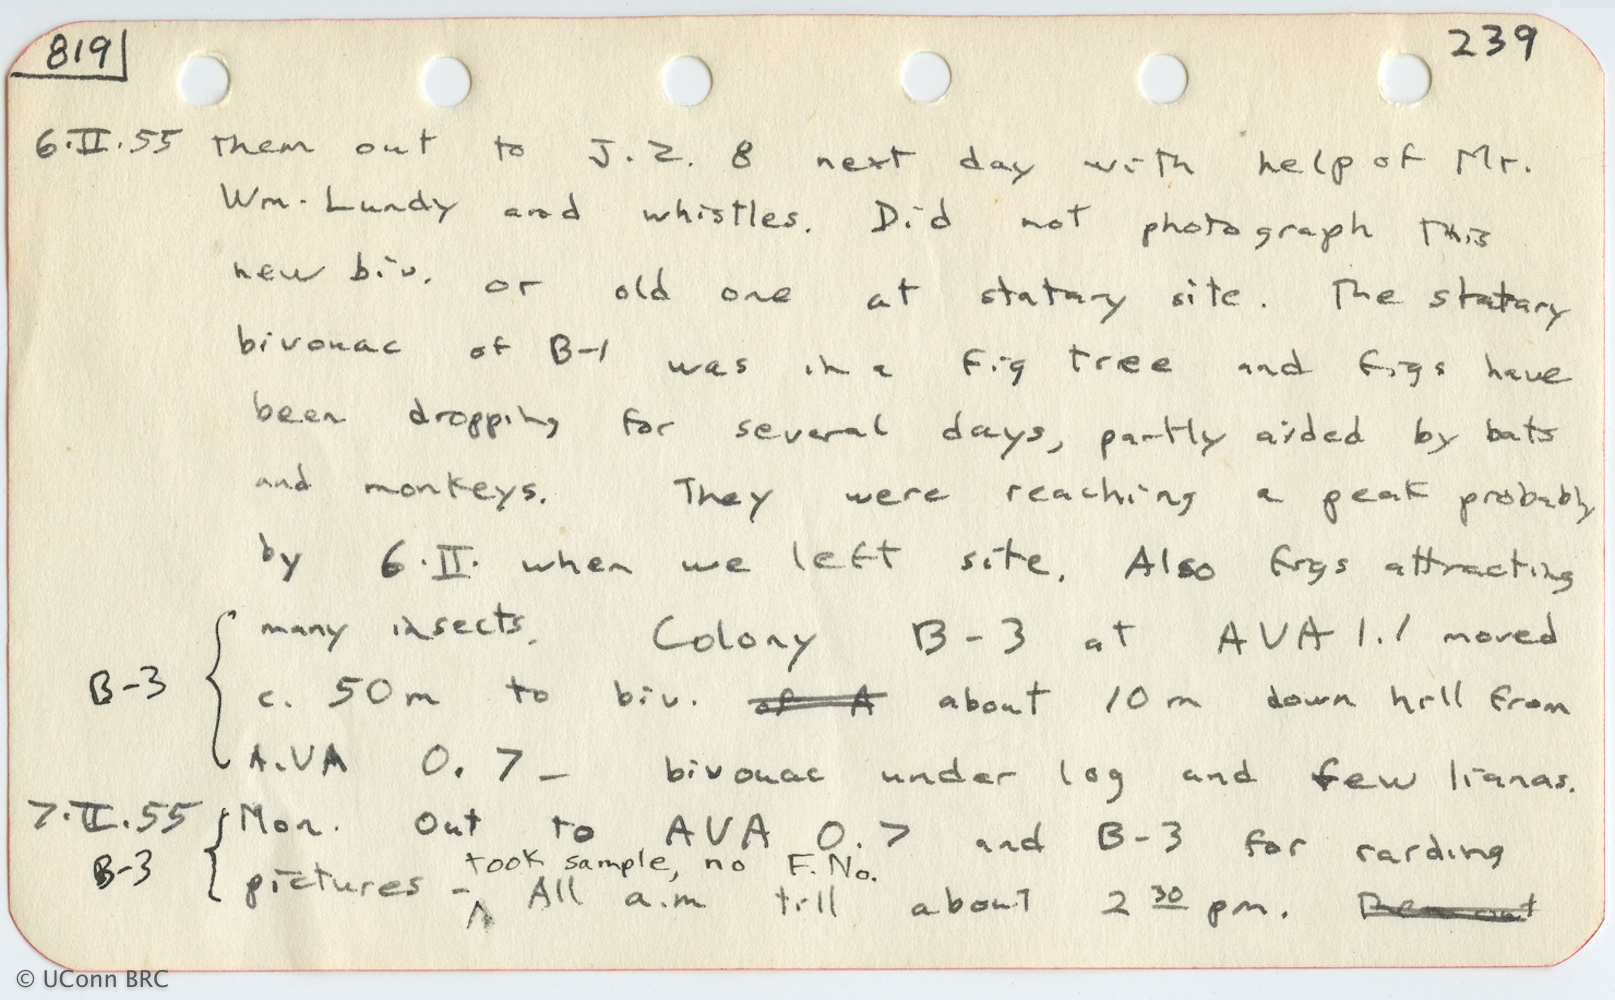 819
239
6.II.55 Them out to J.Z. 8 next day with help of Mr.
Wm. Lundy and whistles. Did not photograph this
new biv. or old one at statary site. The statary
bivouac of B-1 was in a fig tree and figs have
been dropping for several days, partly aided by bats
and monkeys. They were reaching a peak probably
by 6.II. when we left site. Also figs attracting
many insects. Colony B-3 at AVA 1.1 moved
B-3 c. 50m to biv. of A about 10 m down hill from
A.VA 0.7 - bivouac under log and few lianas.
7.II.55 Mon. Out to AVA 0.7 and B-3 for raiding
took sample, no F.No.
B-3 pictures - All a.m till about 2 30 pm.
© UConn BRC